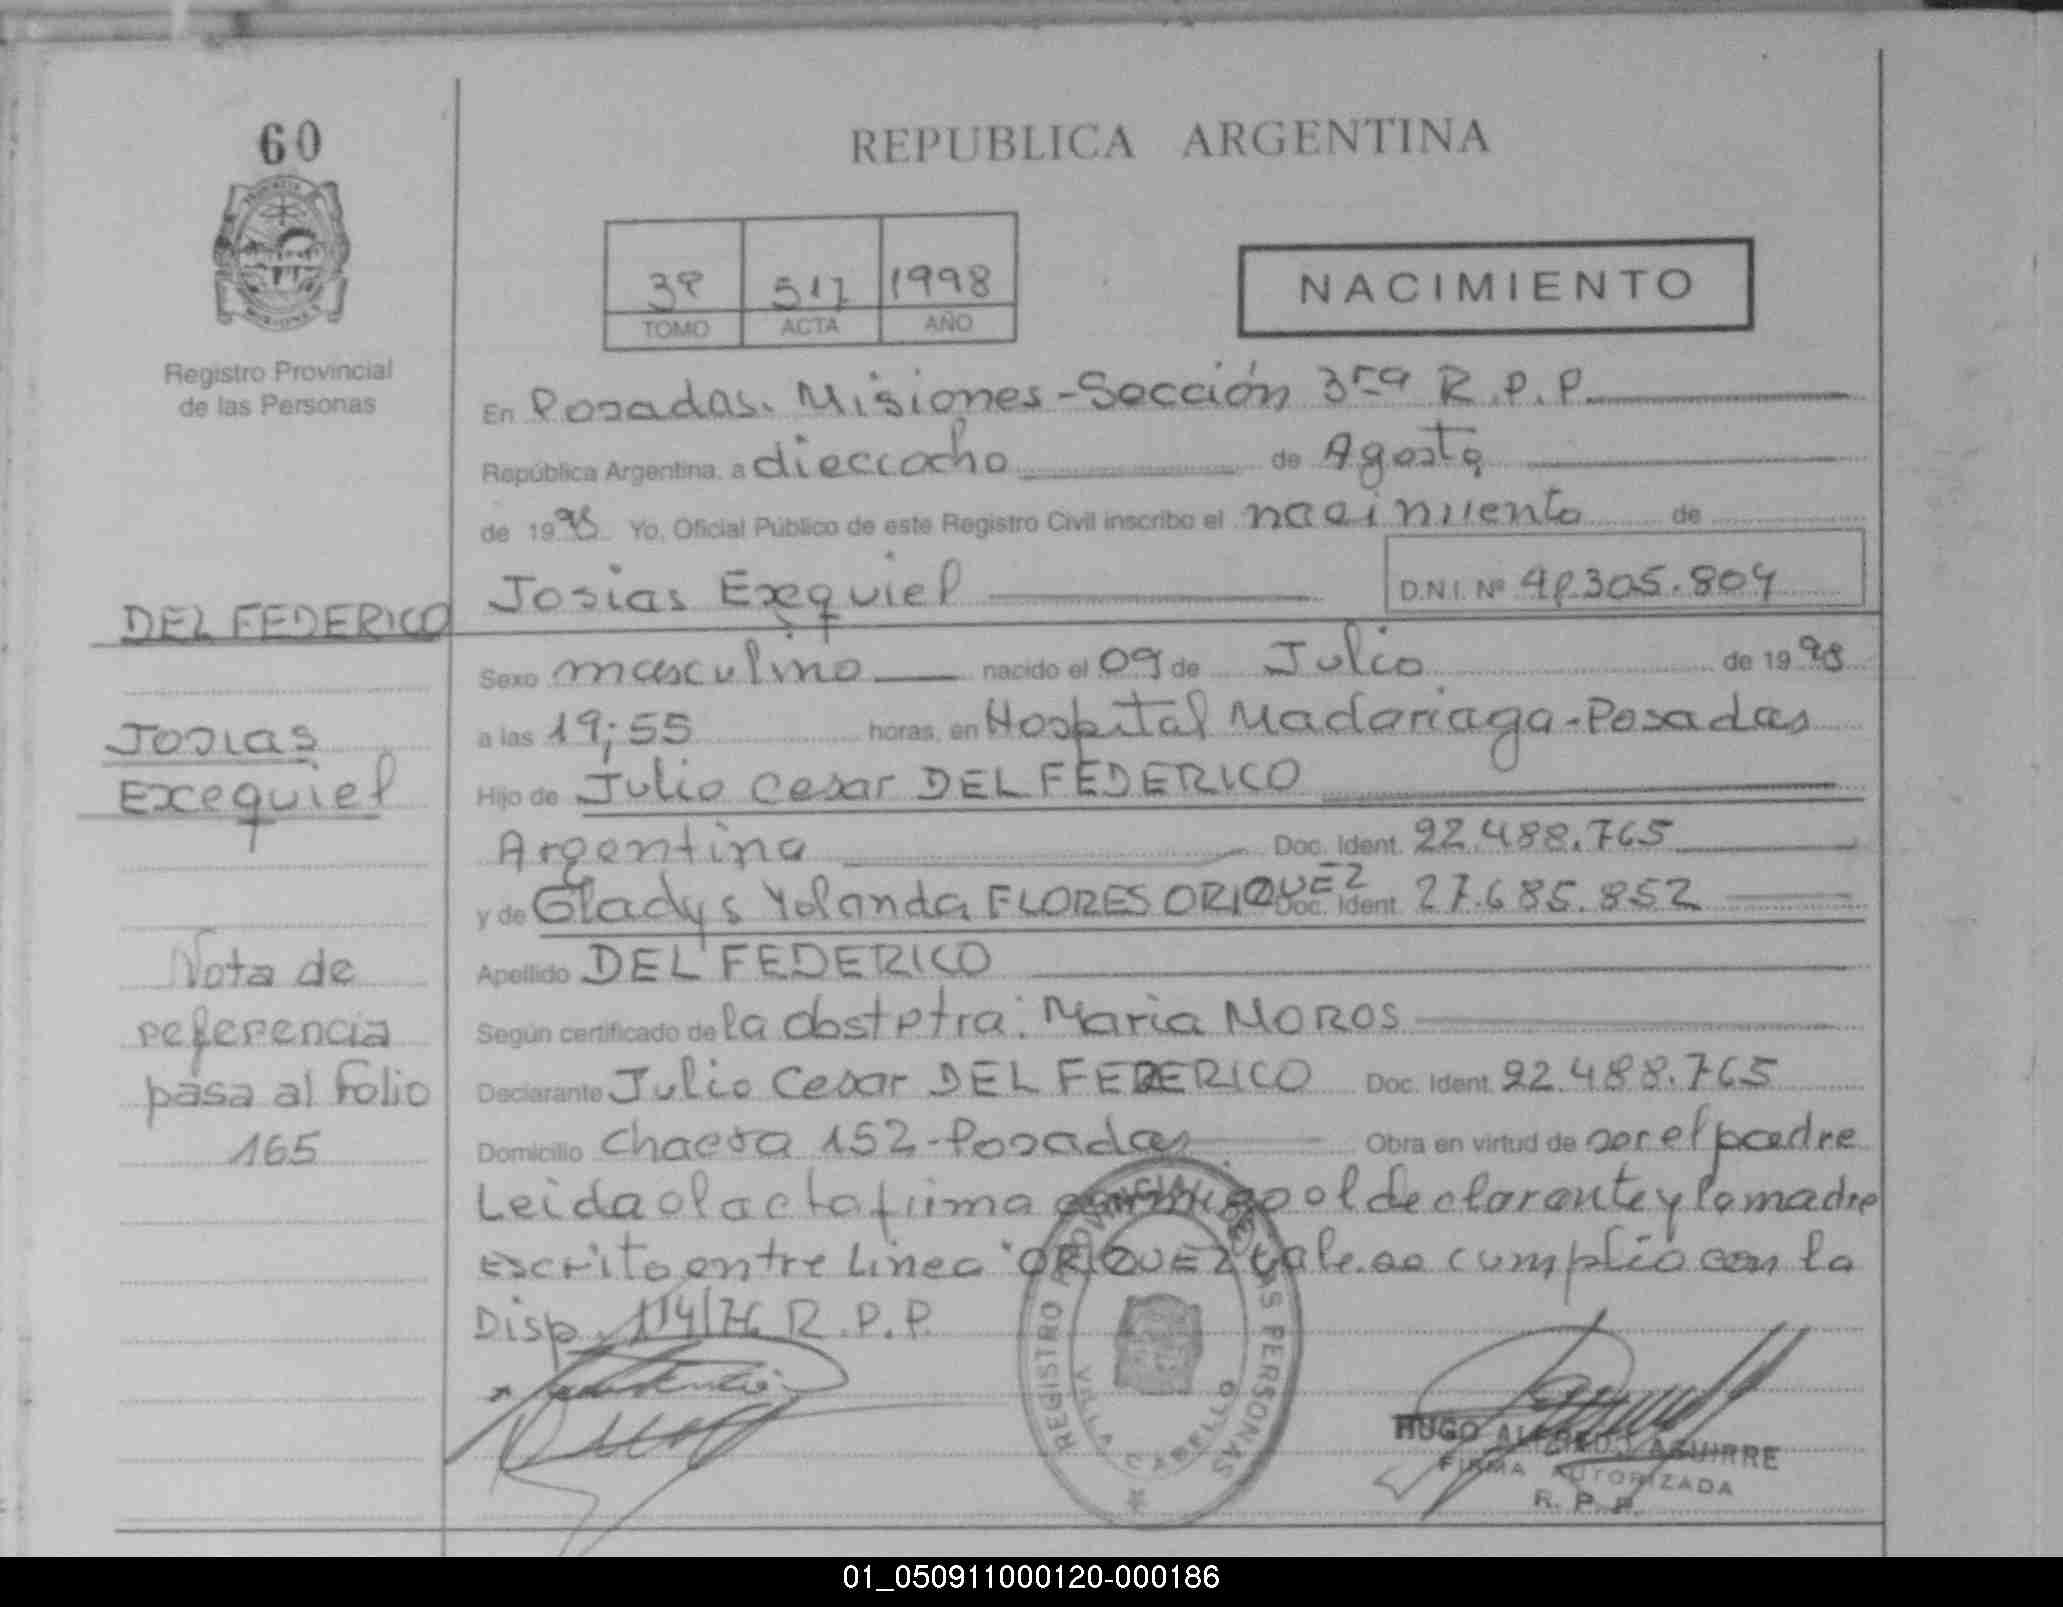 60
REPUBLICA ARGENTINA
3º 517 1998
TOMO ACTA AÑO
NACIMIENTO
Registro Provincial
de las Personas
En Posadas. Misiones-Sección 3ra R.P.P.
República Argentina, a dieciocho de Agosto
de 1998 Yo, Oficial Público de este Registro Civil inscribo el nacimiento de
Josias Exequiel D.N.I. Nº 41.305.804
DEL FEDERICO
Sexo masculino nacido el 09 de Julio de 1998
a las 19;55 horas, en Hospital Madariaga-Posadas
Josias
Exequiel
Hijo de Julio Cesar DEL FEDERICO
Argentina Doc. Ident. 22.488.765
y de Gladys Yolanda FLORES ORIQUEZ Doc. Ident. 27.685.852
Apellido DEL FEDERICO
Nota de
referencia
pasa al folio
165
Según certificado de la obstetra: Maria MOROS
Declarante Julio Cesar DEL FEDERICO Doc. Ident. 22.488.765
Domicilio Chacra 152-Posadas Obra en virtud de ser el padre
Leida el acta firma conmigo el declarante y la madre
Escrito entre linea "ORIQUEZ vale. se cumplio con la
Disp. 114/76 R.P.P.
REGISTRO PROVINCIAL DE LAS PERSONAS
VILLA CABELLO
HUGO ALFREDO AGUIRRE
FIRMA AUTORIZADA
R. P. P.
01_050911000120-000186